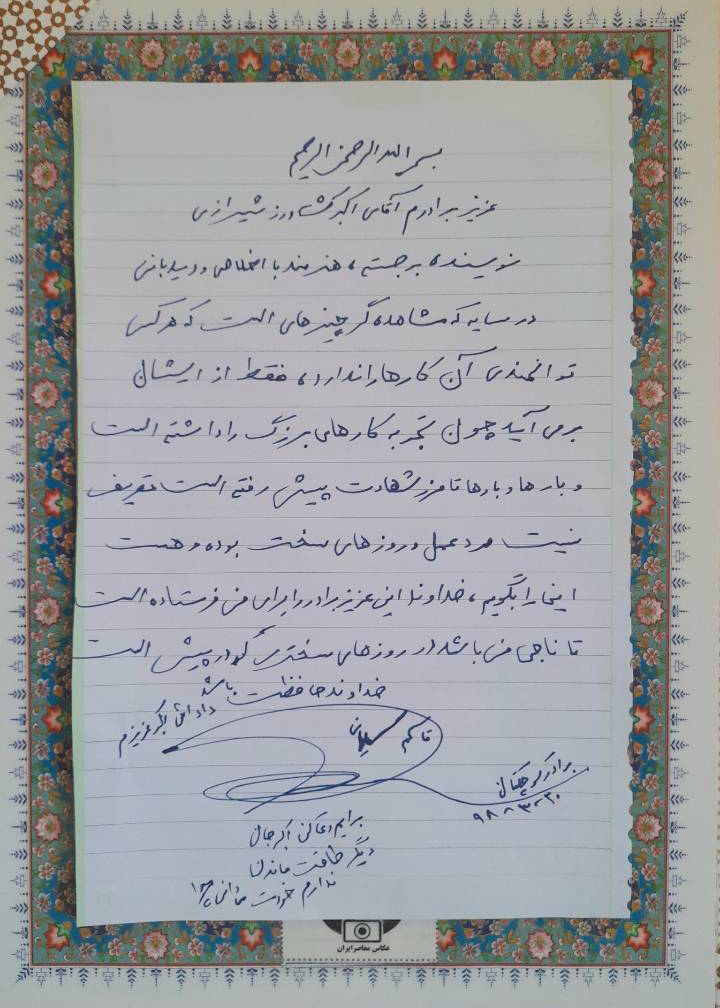 بسم الله الرحمن الرحیم
عزیز برادرم آقای اکبر کشاورز شیرازی
نویسنده برجسته، هنرمند با اخلاص و دیدبانی
در سایه که مشاهده گر چیزهای است که هرکس
توانمندی آن کارها را ندارد، فقط از ایشان
برمی آید چون تجربه کارهای بزرگ را داشته است
و بارها و بارها تا مرز شهادت پیش رفته است تعریف
نیست مرد عمل و روزهای سخت بوده و هست
اینجا را بگویم، خداوند این عزیز برادر را برای من فرستاده است
تا ناجی من باشد در روزهای سختری که در پیش است
خداوند حافظت باشد
داداش اکبر عزیزم
قاسم سلیمانی
برادر کوچکتان
۹۸-۳-۲۰
برایم دعا کن اکبر جان
دیگر طاقت ماندن
ندارم خودت میدانی
عکاس معاصر ایران